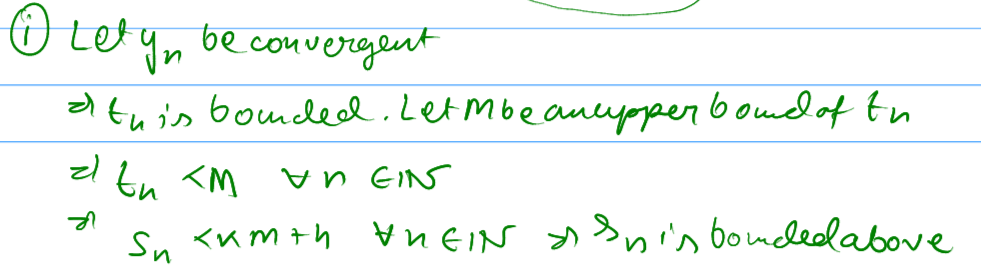 (i) Let yₙ be convergent
⇒ tₙ is bounded. Let M be an upper bound of tₙ
⇒ tₙ < M ∀ n ∈ IN
⇒ Sₙ < KM + h ∀ n ∈ IN ⇒ Sₙ is bounded above